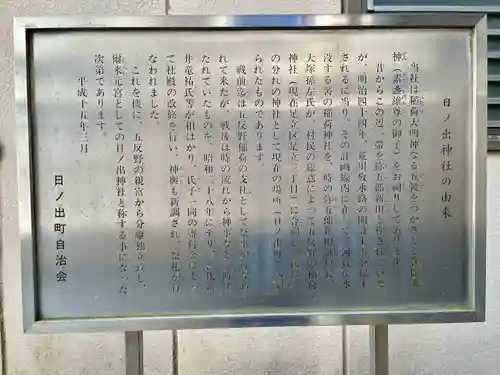 日ノ出神社の由来
当社は稲荷大明神なる五穀をつかさどる
神(素盞雄尊の御子)をお祀りしてあります。
昔からこの辺一帯を弥五郎新田と称されていた
が、明治四十四年、荒川放水路の開さく
されるに当り、その計画線内に在って、河底に水
没する筈の稲荷神社を、時の弥五郎
大塚孫左氏が、村民の総意によって五反野の稲荷
神社(現在足立区足立三丁目)に合祀し
の分れの神社として現在の場所(日ノ出町
られたものであります。
戦前迄は五反野稲荷の支社として祭事
れて来たが、戦後は時の流れから神事など
たれていたものを、昭和二十八年に至り
井竜祐氏等が相はかり、氏子一同の寄付金
て社殿の改修を行い、神輿も新調され、祭礼が行
なわれました。
これを機に、五反野の親宮から分離独立致し、
爾来元宮としての日ノ出神社と称する事になった
次第であります。
平成十五年三月
日ノ出町自治会